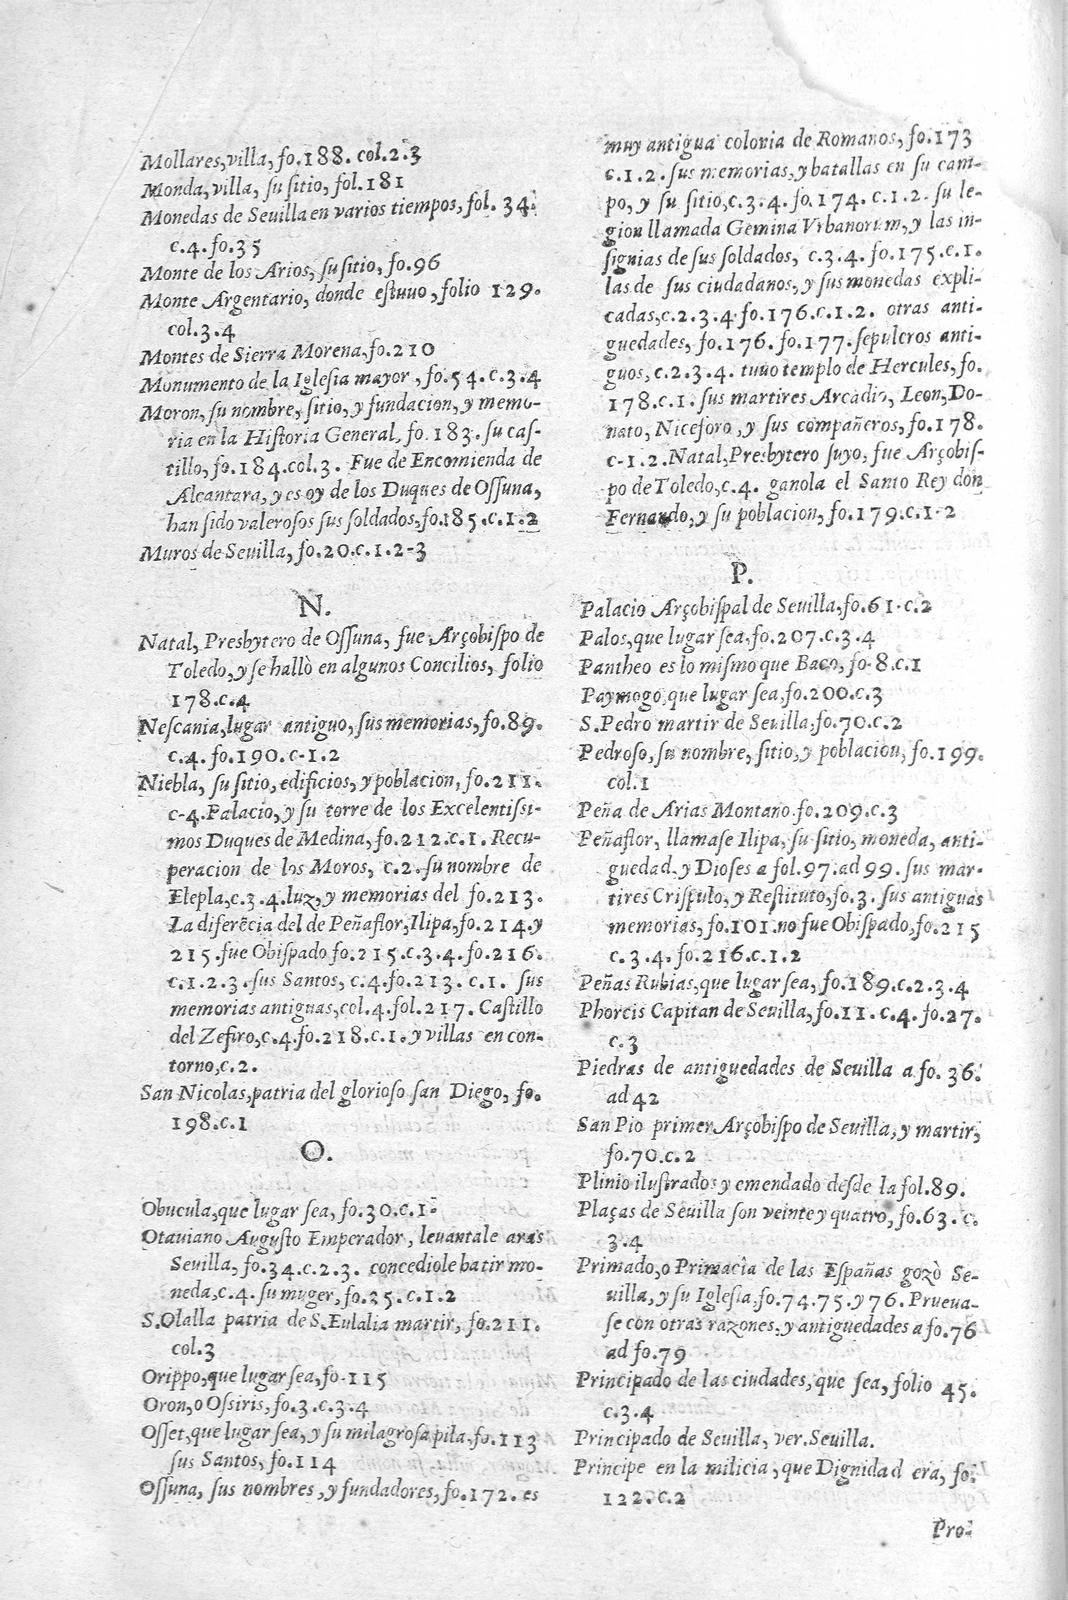 Mollares, villa, fo.188. col.2.3
Monda, villa, su sitio, fol.181
Monedas de Sevilla en varios tiempos, fol. 34.
c.4.fo.35
Monte de los Arios, su sitio, fo.96
Monte Argentario, donde estuuo, folio 129.
col.3.4
Montes de Sierra Morena, fo.210
Monumento de la Iglesia mayor, fo.54.c.3.4
Moron, su nombre, sitio, y fundacion, y memo-
ria en la Historia General, fo.183. su cas-
tillo, fo.184.col.3. Fue de Encomienda de
Alcantara, y es oy de los Duques de Ossuna,
han sido valerosos sus soldados, fo.185.c.1.2
Muros de Sevilla, fo.20.c.1.2-3
N.
Natal, Presbytero de Ossuna, fue Arçobispo de
Toledo, y se hallò en algunos Concilios, folio
178.c.4
Nescania, lugar antiguo, sus memorias, fo.89.
c.4.fo.190.c-1.2
Niebla, su sitio, edificios, y poblacion, fo.211.
c-4. Palacio, y su torre de los Excelentissi-
mos Duques de Medina, fo.212.c.1. Recu-
peracion de los Moros, c.2. su nombre de
Elepla, c.3.4. luz, y memorias del fo.213.
La diferēcia del de Peñaflor, Ilipa, fo.214.y
215. fue Obispado fo.215.c.3.4.fo.216.
c.1.2.3. sus Santos, c.4.fo.213. c.1. sus
memorias antiguas, col.4.fol.217. Castillo
del Zefiro, c.4.fo.218.c.1. y villas en con-
torno, c.2.
San Nicolas, patria del glorioso san Diego, fo.
198.c.1
O.
Obucula, que lugar sea, fo.30.c.1-
Otauiano Augusto Emperador, leuantale aras
Sevilla, fo.34.c.2.3. concediole batir mo-
neda, c.4. su muger, fo.35.c.1.2
S.Olalla patria de S.Eulalia martir, fo.211.
col.3
Orippo, que lugar sea, fo-115
Oron, o Ossiris, fo.3.c.3.4
Osset, que lugar sea, y su milagrosa pila, fo.113
sus Santos, fo.114
Ossuna, sus nombres, y fundadores, fo.172. es
muy antigua colonia de Romanos, fo.173
c.1.2. sus memorias, y batallas en su cam-
po, y su sitio, c.3.4. fo.174. c.1.2. su le-
gion llamada Gemina Vrbanorum, y las in-
signias de sus soldados, c.3.4. fo.175.c.1.
las de sus ciudadanos, y sus monedas expli-
cadas, c.2.3.4.fo.176.c.1.2. otras anti-
guedades, fo.176. fo.177. sepulcros anti-
guos, c.2.3.4. tuuo templo de Hercules, fo.
178.c.1. sus martires Arcadio, Leon, Do-
nato, Niceforo, y sus compañeros, fo.178.
c-1.2. Natal, Presbytero suyo, fue Arçobis-
po de Toledo, c.4. ganola el Santo Rey don
Fernando, y su poblacion, fo.179.c.1-2
P.
Palacio Arçobispal de Sevilla, fo.61.c.2
Palos, que lugar sea, fo.207.c.3.4
Pantheo es lo mismo que Baco, fo-8.c.1
Paymogo que lugar sea, fo.200.c.3
S.Pedro martir de Sevilla, fo.70.c.2
Pedroso, su nombre, sitio, y poblacion, fo.199.
col.1
Peña de Arias Montano fo.209.c.3
Peñaflor, llamase Ilipa, su sitio, moneda, anti-
guedad, y Dioses a fol.97.ad 99. sus mar-
tires Crispulo, y Restituto, fo.3. sus antiguas
memorias, fo.101. no fue Obispado, fo.215
c.3.4.fo.216.c.1.2
Peñas Rubias, que lugar sea, fo.189.c.2.3.4
Phorcis Capitan de Sevilla, fo.11. c.4. fo.27.
c.3
Piedras de antiguedades de Sevilla a fo. 36.
ad 42
San Pio primer Arçobispo de Sevilla, y martir,
fo.70.c.2
Plinio ilustrado y emendado desde la fol.89.
Plaças de Sevilla son veinte y quatro, fo.63. c.
3.4
Primado, o Primacia de las Españas gozò Se-
uilla, y su Iglesia, fo.74.75.y 76. Prueua-
se con otras razones, y antiguedades a fo.76
ad fo.79
Principado de las ciudades, que sea, folio 45.
c.3.4
Principado de Sevilla, ver. Sevilla.
Principe en la milicia, que Dignidad era, fo.
122.c.2
Pro-